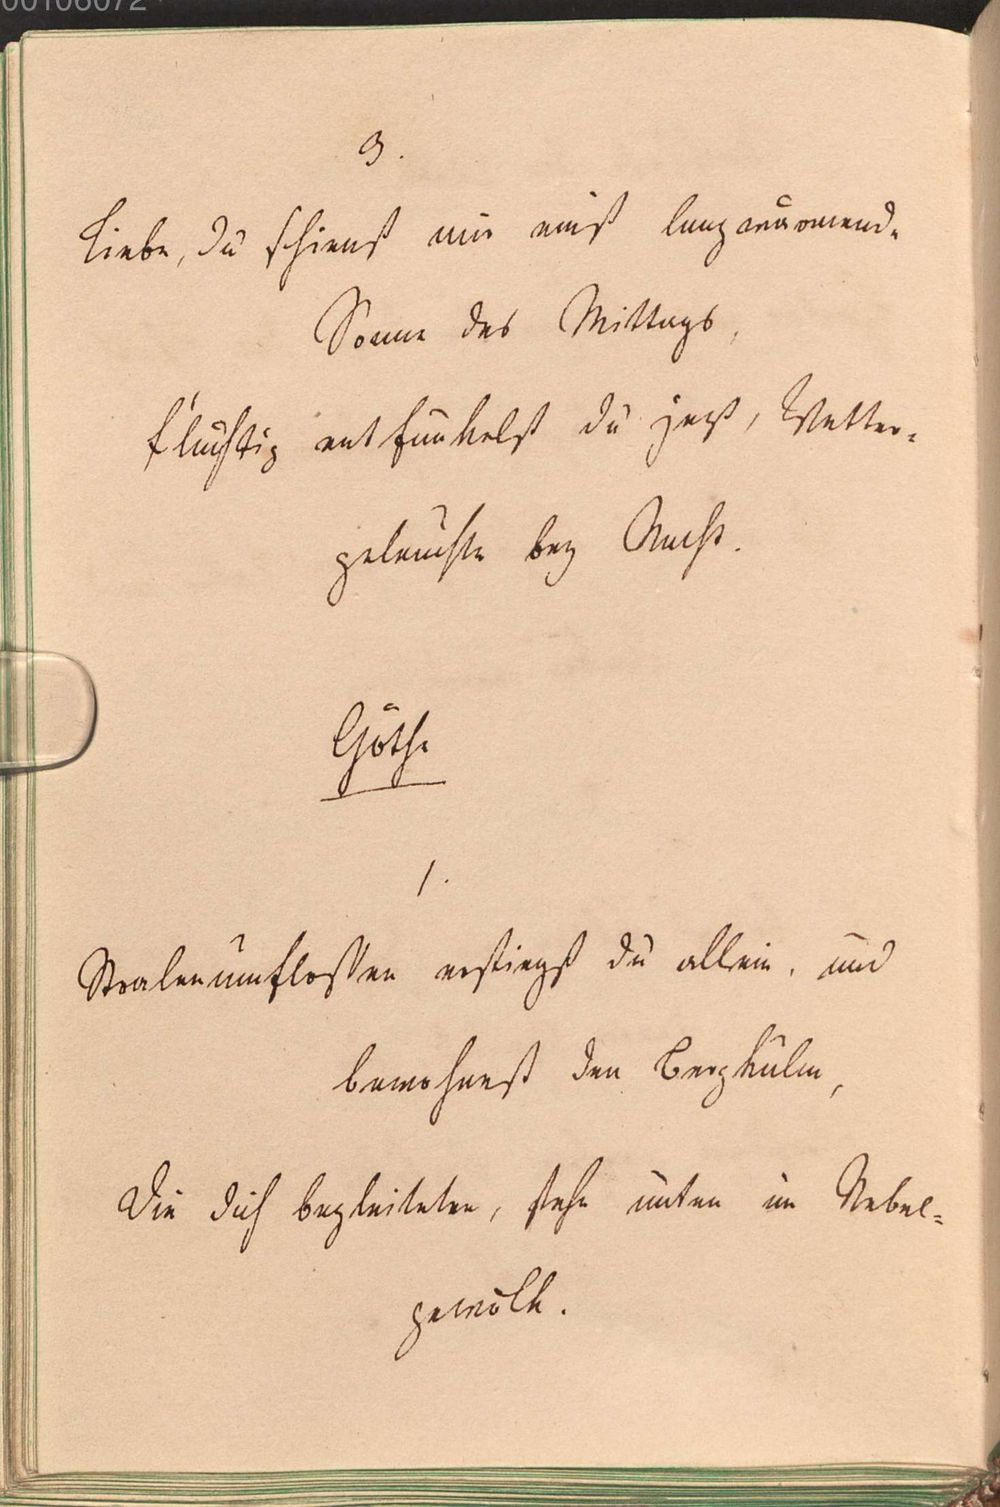 00106072
3.
Liebe, du schienst mir einst lenzwärmend-
Sonne des Mittags,
flüchtig entfunkelst du jetzt, Wetter-
geleuchte bey Nacht.
Göthe
1.
Stralenumflossen erstiegst du allein, und
bewohnest den Bergkulm,
Die dich begleiteten, stehn unten im Nebel-
gewölk.